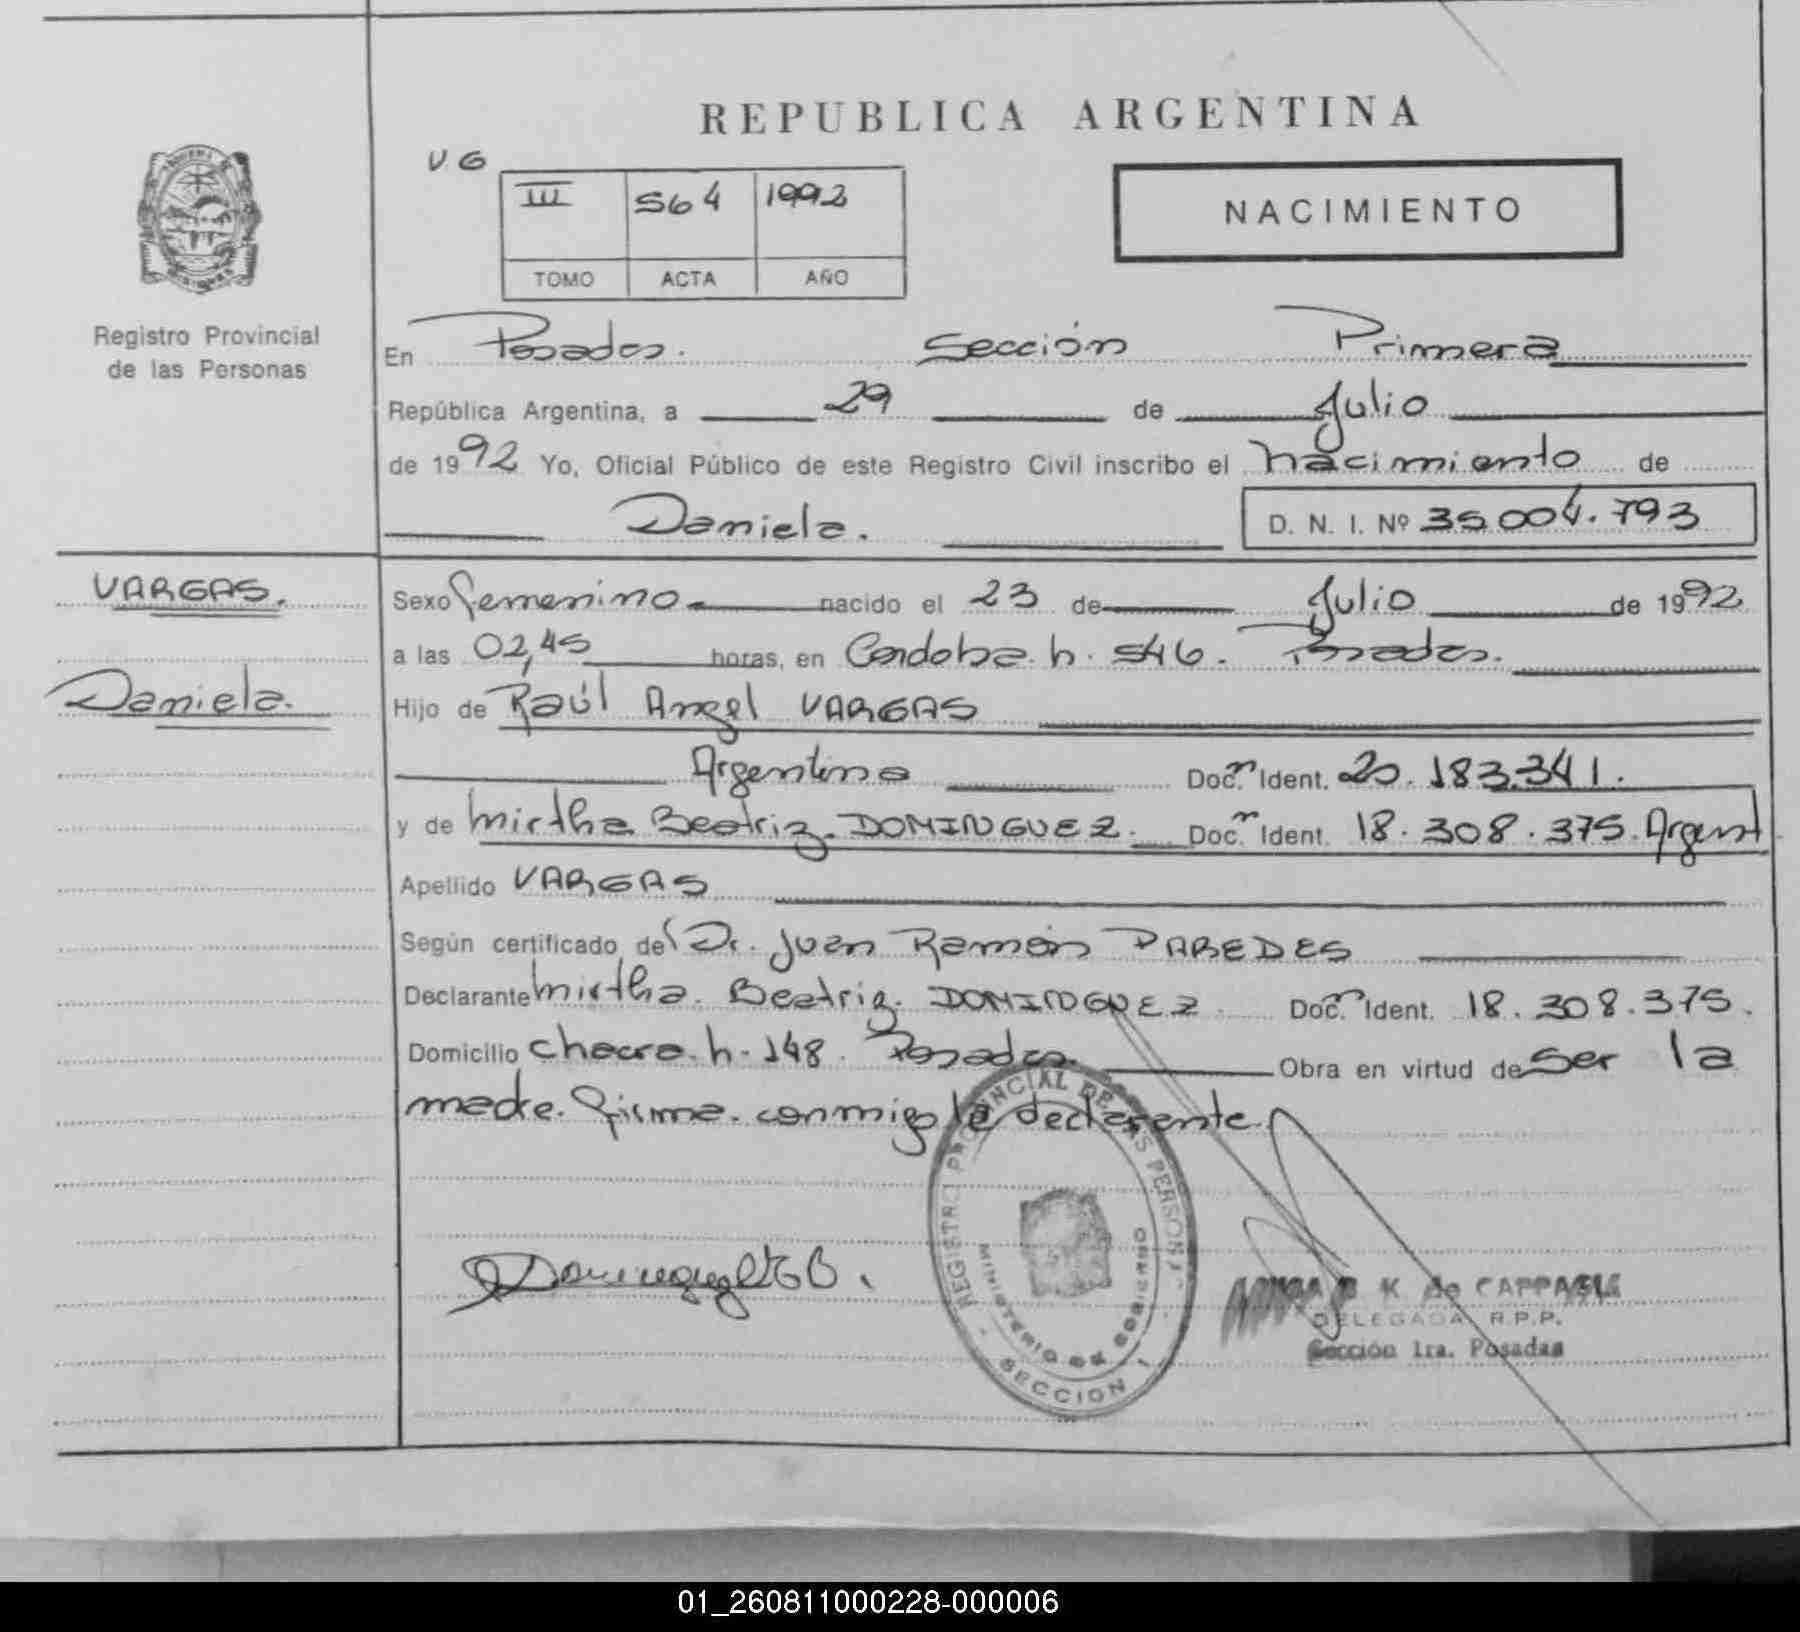 REPUBLICA ARGENTINA
V G
III 564 1992
TOMO ACTA AÑO
NACIMIENTO
Registro Provincial
de las Personas
En Posadas. Sección Primera
República Argentina, a 29 de Julio
de 1992 Yo, Oficial Público de este Registro Civil inscribo el nacimiento de
Daniela. D. N. I. Nº 35.004.793
VARGAS.
Daniela.
Sexo femenino nacido el 23 de Julio de 1992
a las 02,45 horas, en Cordoba. h. 546. Posadas.
Hijo de Raúl Angel VARGAS
Argentino Doc.m Ident. 20.183.341.
y de Mirtha Beatriz. DOMINGUEZ. Doc.m Ident. 18.308.375. Argent
Apellido VARGAS
Según certificado del Dr. Juan Ramón PAREDES
Declarante Mirtha. Beatriz. DOMINGUEZ. Doc.m Ident. 18.308.375.
Domicilio chacra. h. 148. Posadas. Obra en virtud de ser la
madre. firma. conmigo la declarante.
REGISTRO PROVINCIAL DE LAS PERSONAS
MINISTERIO DE GOBIERNO
SECCION 1
B K de
DELEGADA R.P.P.
Sección 1ra. Posadas
01_260811000228-000006